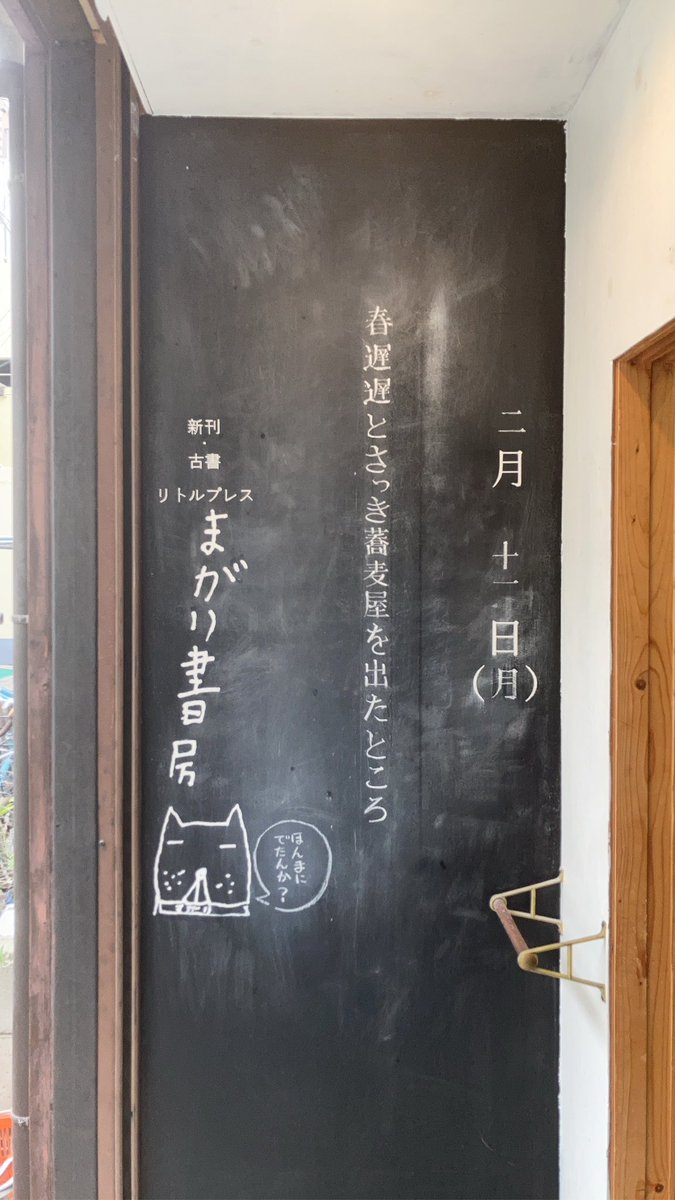 二月 十一日(月)
春遅遅とさっき蕎麦屋を出たところ
新刊
・
古書
リトルプレス
まがり書房
ほんまに
でたんか?